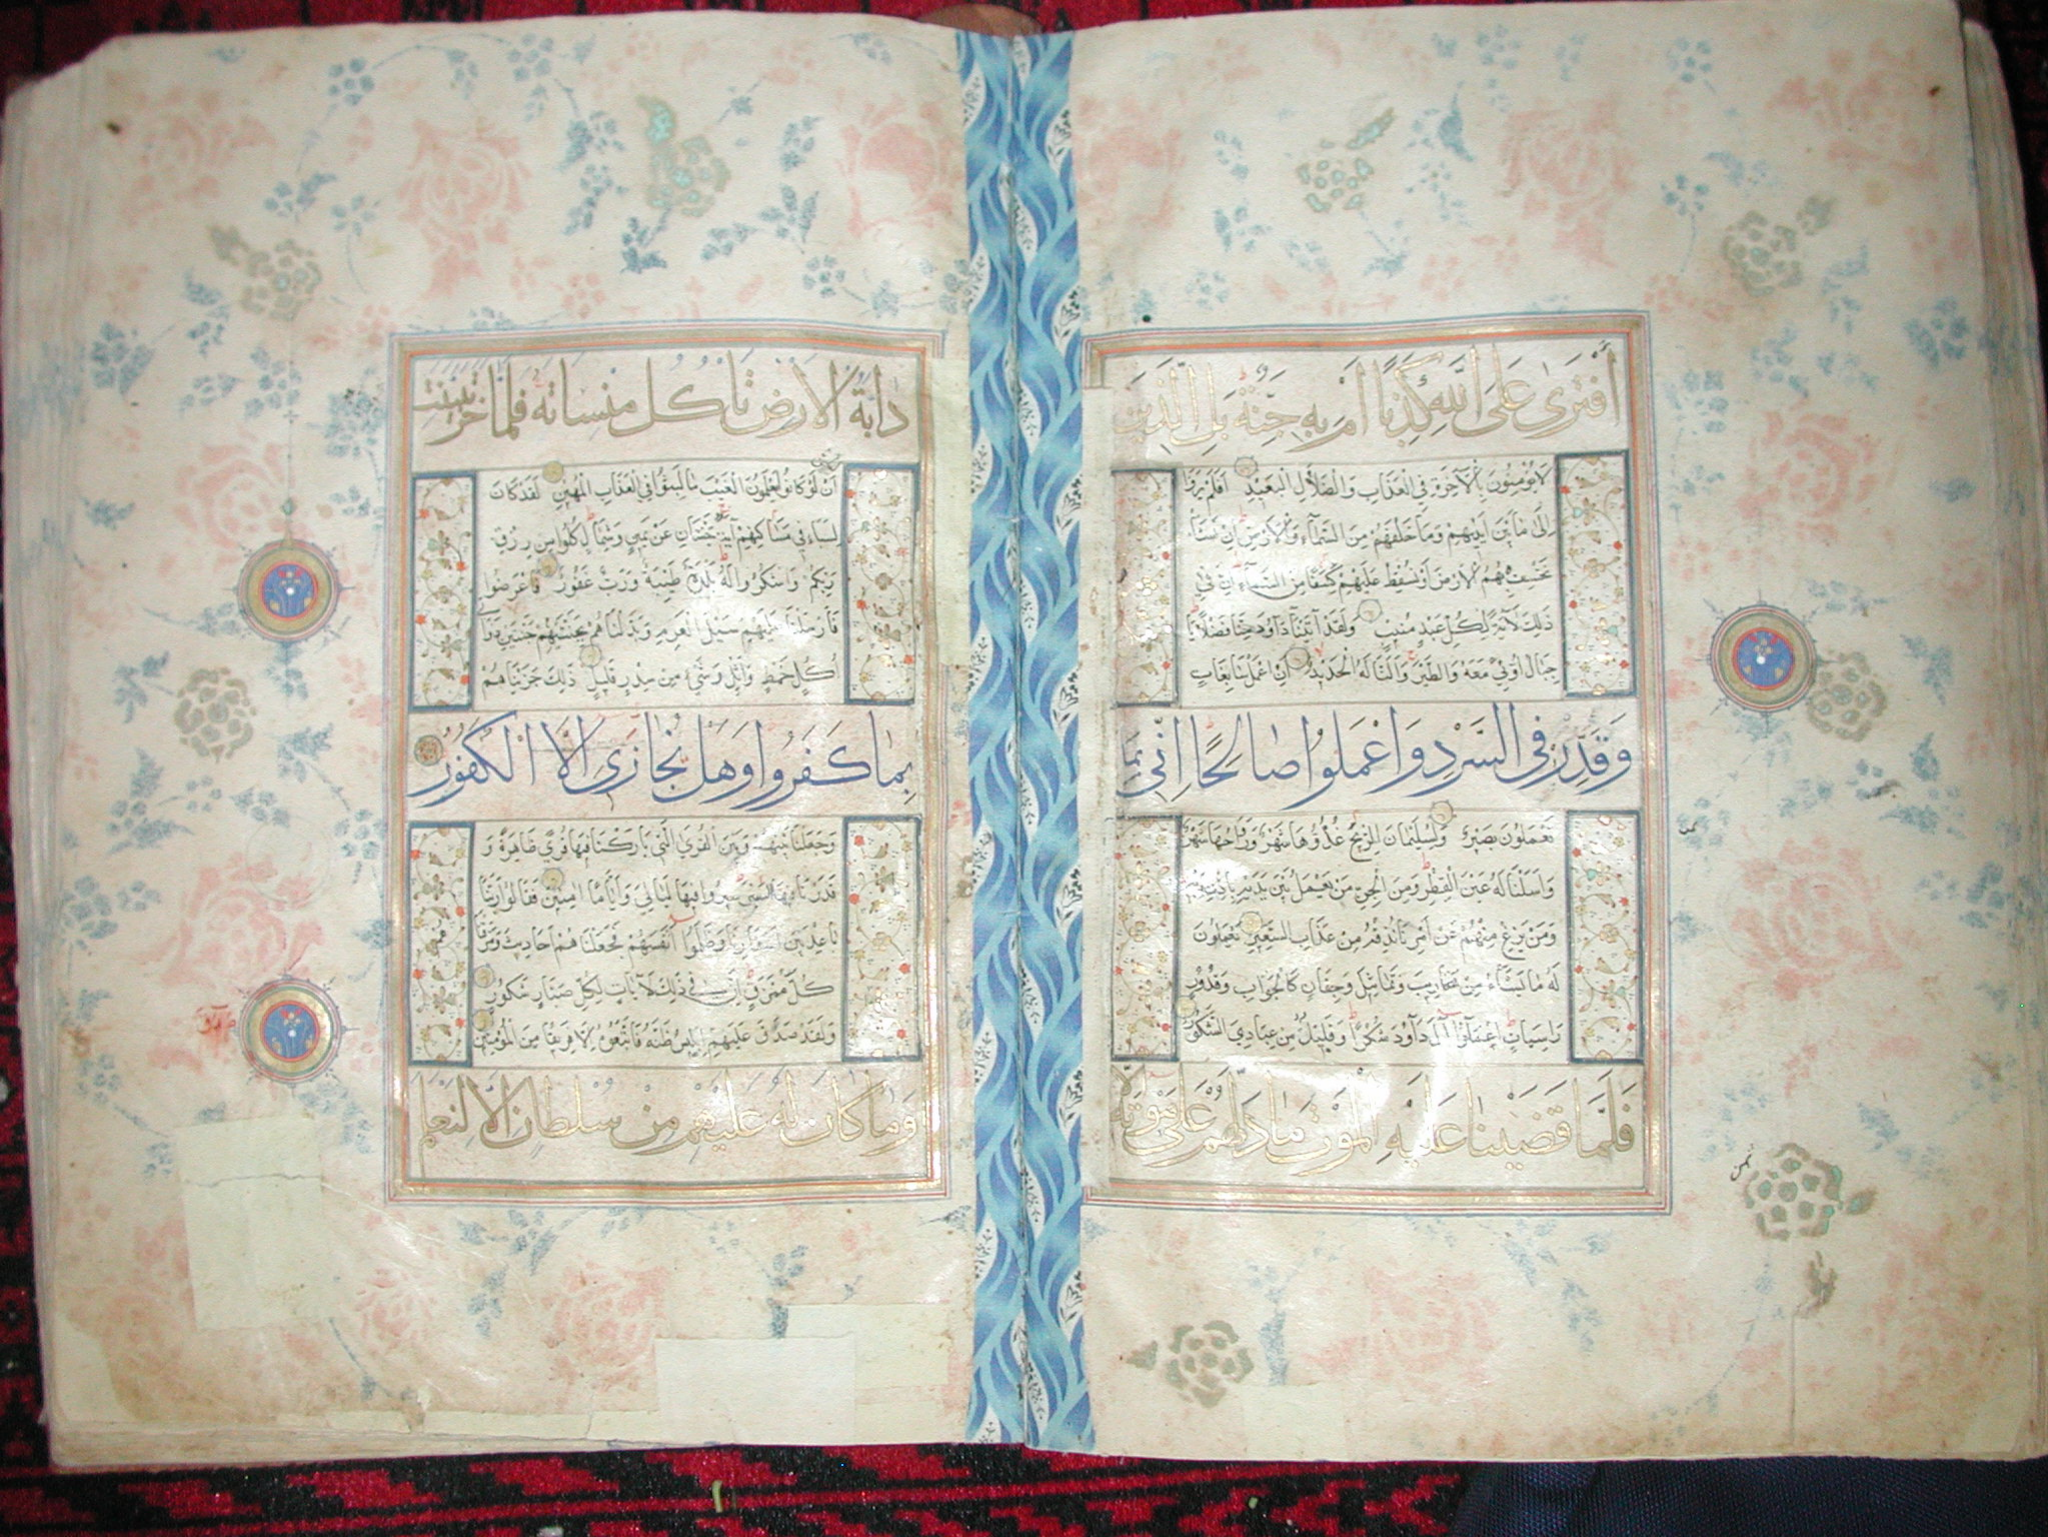 أَفْتَرَى عَلَى اللَّهِ كَذِبًا أَمْ بِهِ جِنَّةٌ بَلِ الَّذِينَ
لَا يُؤْمِنُونَ بِالْآخِرَةِ فِي الْعَذَابِ وَالضَّلَالِ الْبَعِيدِ أَفَلَمْ يَرَوْا
إِلَى مَا بَيْنَ أَيْدِيهِمْ وَمَا خَلْفَهُمْ مِنَ السَّمَاءِ وَالْأَرْضِ إِنْ نَشَأْ
نَخْسِفْ بِهِمُ الْأَرْضَ أَوْ نُسْقِطْ عَلَيْهِمْ كِسَفًا مِنَ السَّمَاءِ إِنَّ فِي
ذَلِكَ لَآيَةً لِكُلِّ عَبْدٍ مُنِيبٍ وَلَقَدْ آتَيْنَا دَاوُدَ مِنَّا فَضْلًا يَا
جِبَالُ أَوِّبِي مَعَهُ وَالطَّيْرَ وَأَلَنَّا لَهُ الْحَدِيدَ أَنِ اعْمَلْ سَابِغَاتٍ
وَقَدِّرْ فِي السَّرْدِ وَاعْمَلُوا صَالِحًا إِنِّي بِمَا
تَعْمَلُونَ بَصِيرٌ وَلِسُلَيْمَانَ الرِّيحَ غُدُوُّهَا شَهْرٌ وَرَوَاحُهَا شَهْرٌ
وَأَسَلْنَا لَهُ عَيْنَ الْقِطْرِ وَمِنَ الْجِنِّ مَنْ يَعْمَلُ بَيْنَ يَدَيْهِ بِإِذْنِ رَبِّهِ
وَمَنْ يَزِغْ مِنْهُمْ عَنْ أَمْرِنَا نُذِقْهُ مِنْ عَذَابِ السَّعِيرِ يَعْمَلُونَ
لَهُ مَا يَشَاءُ مِنْ مَحَارِيبَ وَتَمَاثِيلَ وَجِفَانٍ كَالْجَوَابِ وَقُدُورٍ
رَاسِيَاتٍ اعْمَلُوا آلَ دَاوُدَ شُكْرًا وَقَلِيلٌ مِنْ عِبَادِيَ الشَّكُورُ
فَلَمَّا قَضَيْنَا عَلَيْهِ الْمَوْتَ مَا دَلَّهُمْ عَلَى مَوْتِهِ إِلَّا
دَابَّةُ الْأَرْضِ تَأْكُلُ مِنْسَأَتَهُ فَلَمَّا خَرَّ تَبَيَّنَتِ
الْجِنُّ
أَنْ لَوْ كَانُوا يَعْلَمُونَ الْغَيْبَ مَا لَبِثُوا فِي الْعَذَابِ الْمُهِينِ لَقَدْ كَانَ
لِسَبَإٍ فِي مَسَاكِنِهِمْ آيَةٌ جَنَّتَانِ عَنْ يَمِينٍ وَشِمَالٍ كُلُوا مِنْ رِزْقِ
رَبِّكُمْ وَاشْكُرُوا لَهُ بَلْدَةٌ طَيِّبَةٌ وَرَبٌّ غَفُورٌ فَأَعْرَضُوا
فَأَرْسَلْنَا عَلَيْهِمْ سَيْلَ الْعَرِمِ وَبَدَّلْنَاهُمْ بِجَنَّتَيْهِمْ جَنَّتَيْنِ ذَوَاتَيْ
أُكُلٍ خَمْطٍ وَأَثْلٍ وَشَيْءٍ مِنْ سِدْرٍ قَلِيلٍ ذَلِكَ جَزَيْنَاهُمْ
بِمَا كَفَرُوا وَهَلْ نُجَازِي إِلَّا الْكَفُورَ
وَجَعَلْنَا بَيْنَهُمْ وَبَيْنَ الْقُرَى الَّتِي بَارَكْنَا فِيهَا قُرًى ظَاهِرَةً وَ
قَدَّرْنَا فِيهَا السَّيْرَ سِيرُوا فِيهَا لَيَالِيَ وَأَيَّامًا آمِنِينَ فَقَالُوا رَبَّنَا
بَاعِدْ بَيْنَ أَسْفَارِنَا وَظَلَمُوا أَنْفُسَهُمْ فَجَعَلْنَاهُمْ أَحَادِيثَ وَمَزَّقْنَاهُمْ
كُلَّ مُمَزَّقٍ إِنَّ فِي ذَلِكَ لَآيَاتٍ لِكُلِّ صَبَّارٍ شَكُورٍ
وَلَقَدْ صَدَّقَ عَلَيْهِمْ إِبْلِيسُ ظَنَّهُ فَاتَّبَعُوهُ إِلَّا فَرِيقًا مِنَ الْمُؤْمِنِينَ
وَمَا كَانَ لَهُ عَلَيْهِمْ مِنْ سُلْطَانٍ إِلَّا لِنَعْلَمَ